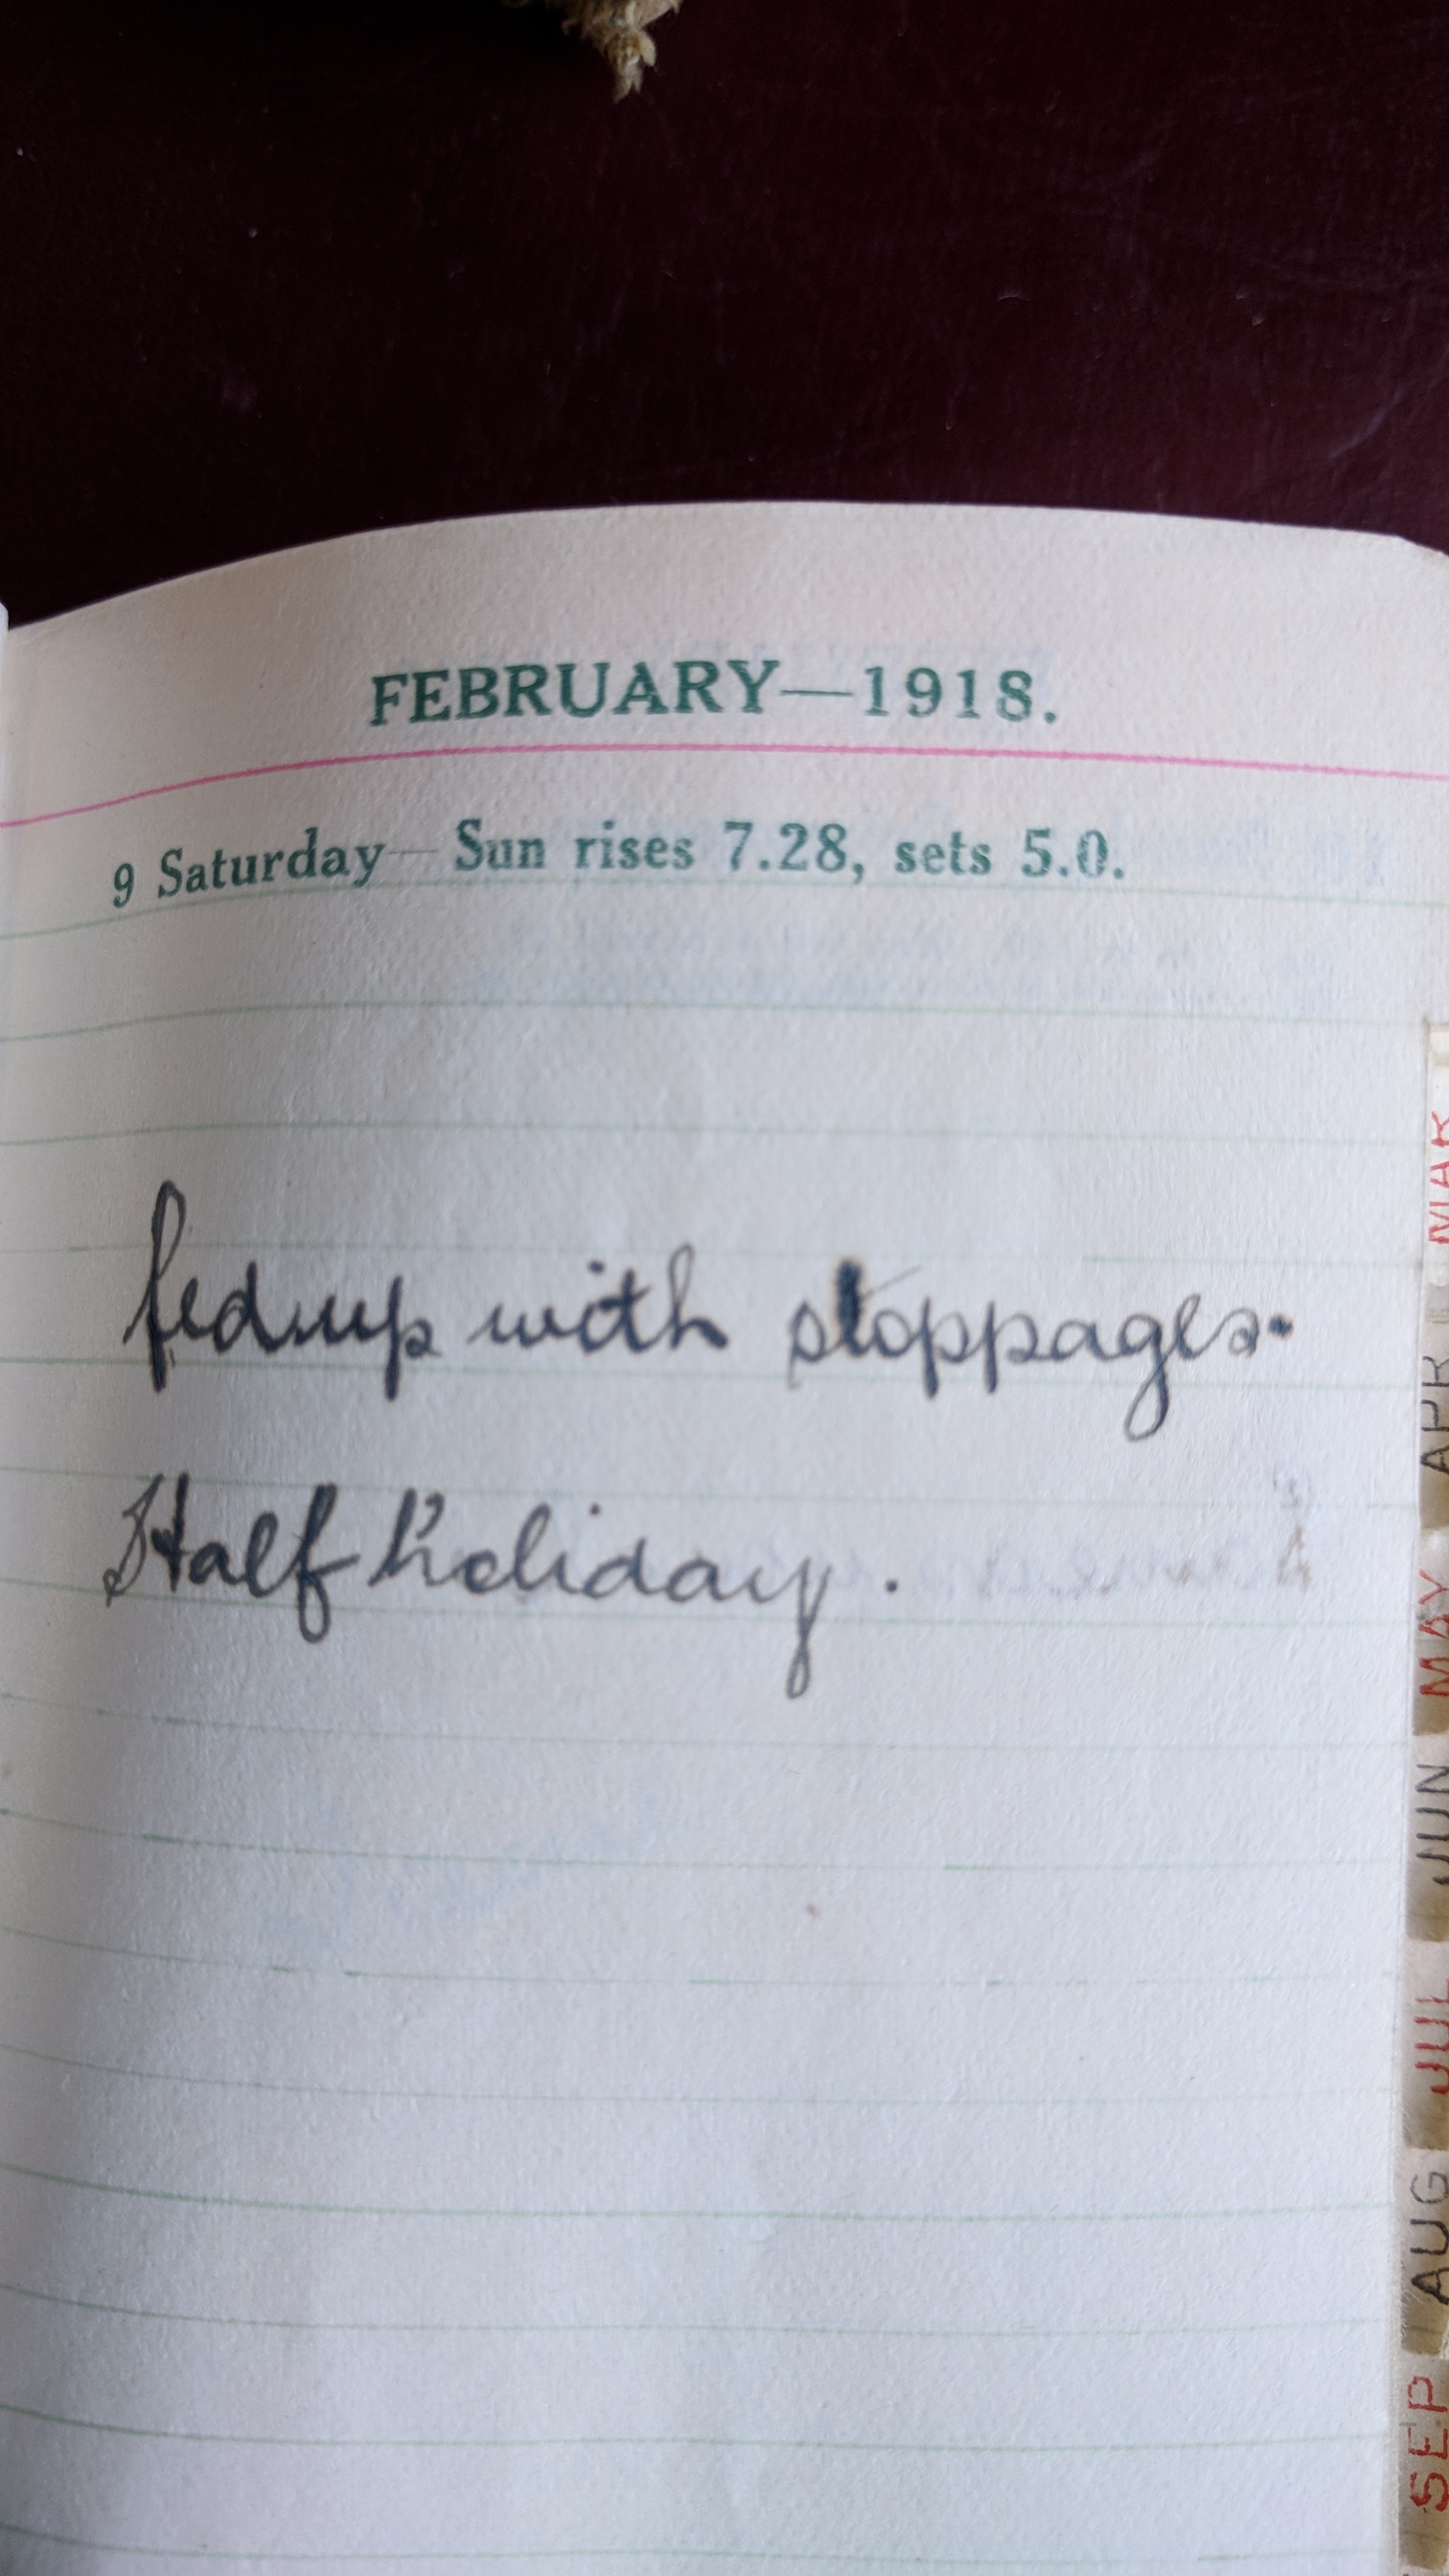 FEBRUARY—1918.
9 Saturday— Sun rises 7.28, sets 5.0.
fed up with stoppages.
Half holiday.
MAR
APR
MAY
JUN
JUL
AUG
SEP